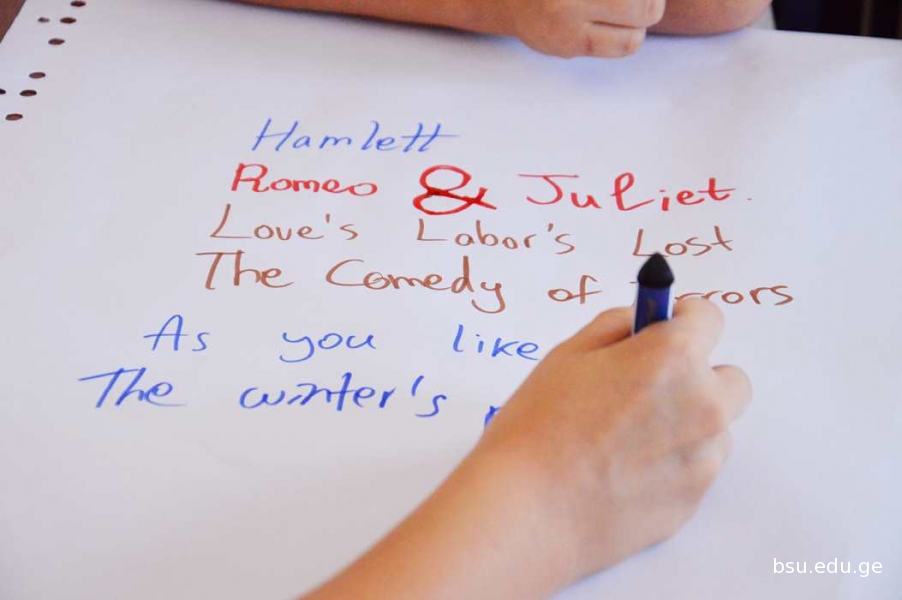 Hamlett
Romeo & Juliet.
Love's Labor's Lost
The Comedy of rrors
As you like
The winter's
bsu.edu.ge